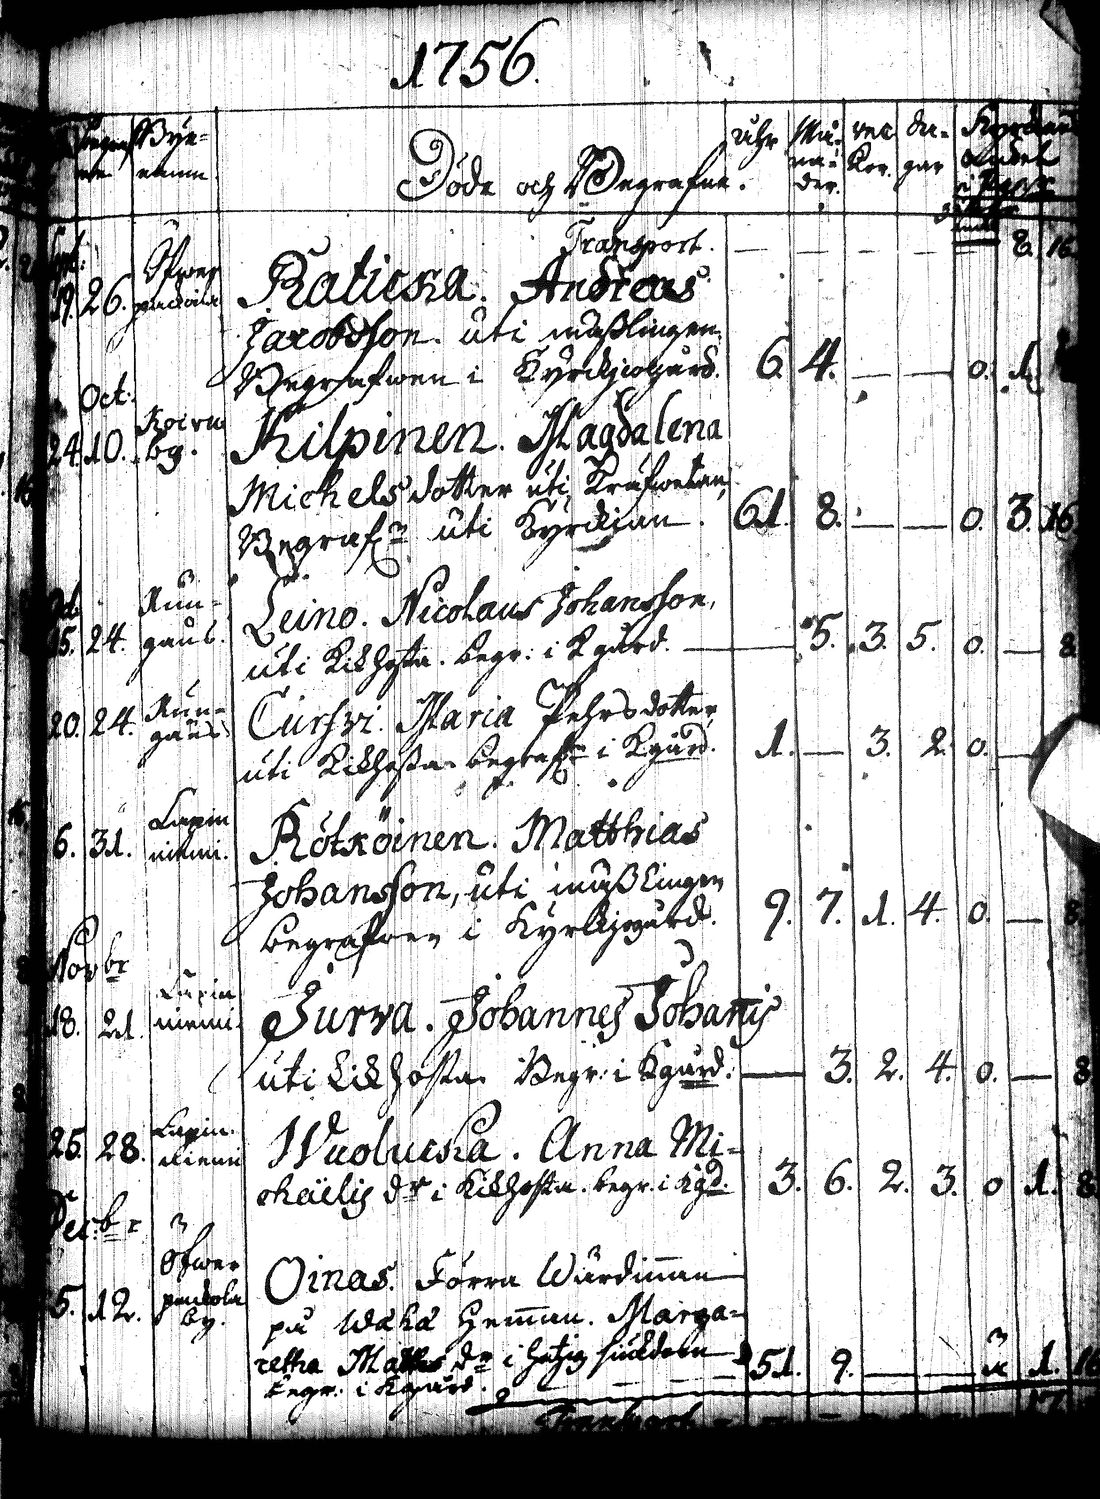 1756.
Bye-
namn.
Döde och Begrafne.
Åhr
Må-
na-
der.
vec
kor.
da-
gar
Transport. — — — — 8. 16
Sept:
19. 26. Öfwer
Raticka. Andreas
Jacobsson. uti mäßlingen.
Begrafwen i Kyrckiogård. 6. 4. — — 0. 1.
Oct:
24. 10. Koiru
by.
Kilpinen. Magdalena
Michels dotter uti
Begrafn uti Kyrckian. 61. 8. — — 0. 3. 16
15. 24. Kun-
gäus.
Leino. Nicolaus Johansson,
uti Kikhosta. begr: i Kgård. — 5. 3. 5. 0. — 8
20. 24. Kun-
gäus
Maria Pehrsdotter
uti Kikhosta begrafn i Kgård. 1. — 3. 2. 0. —
6. 31. Lapin
niemi.
Rötköinen. Matthias
Johansson, uti mäßlingen
begrafwen i Kyrkjogård. 9. 7. 1. 4. 0. — 8
Novbr
18. 21. Lapin
niemi.
Jurva. Johannes Johanis
uti Kikhosta. Begr: i Kgård. — 3. 2. 4. 0. — 8
25. 28. Lapin-
niemi
Anna Mi-
chaëlis dr i Kikhosta. begr. i Kgd. 3. 6. 2. 3. 0 1. 8
Decbr
5. 12. Öfwer
by.
Oinas. Förra Wärdinnan
på Heman. Marga-
retha Matts dr i hetzig siukdom
begr: i Kgård. 51. 9. — — 1. 16
Transport